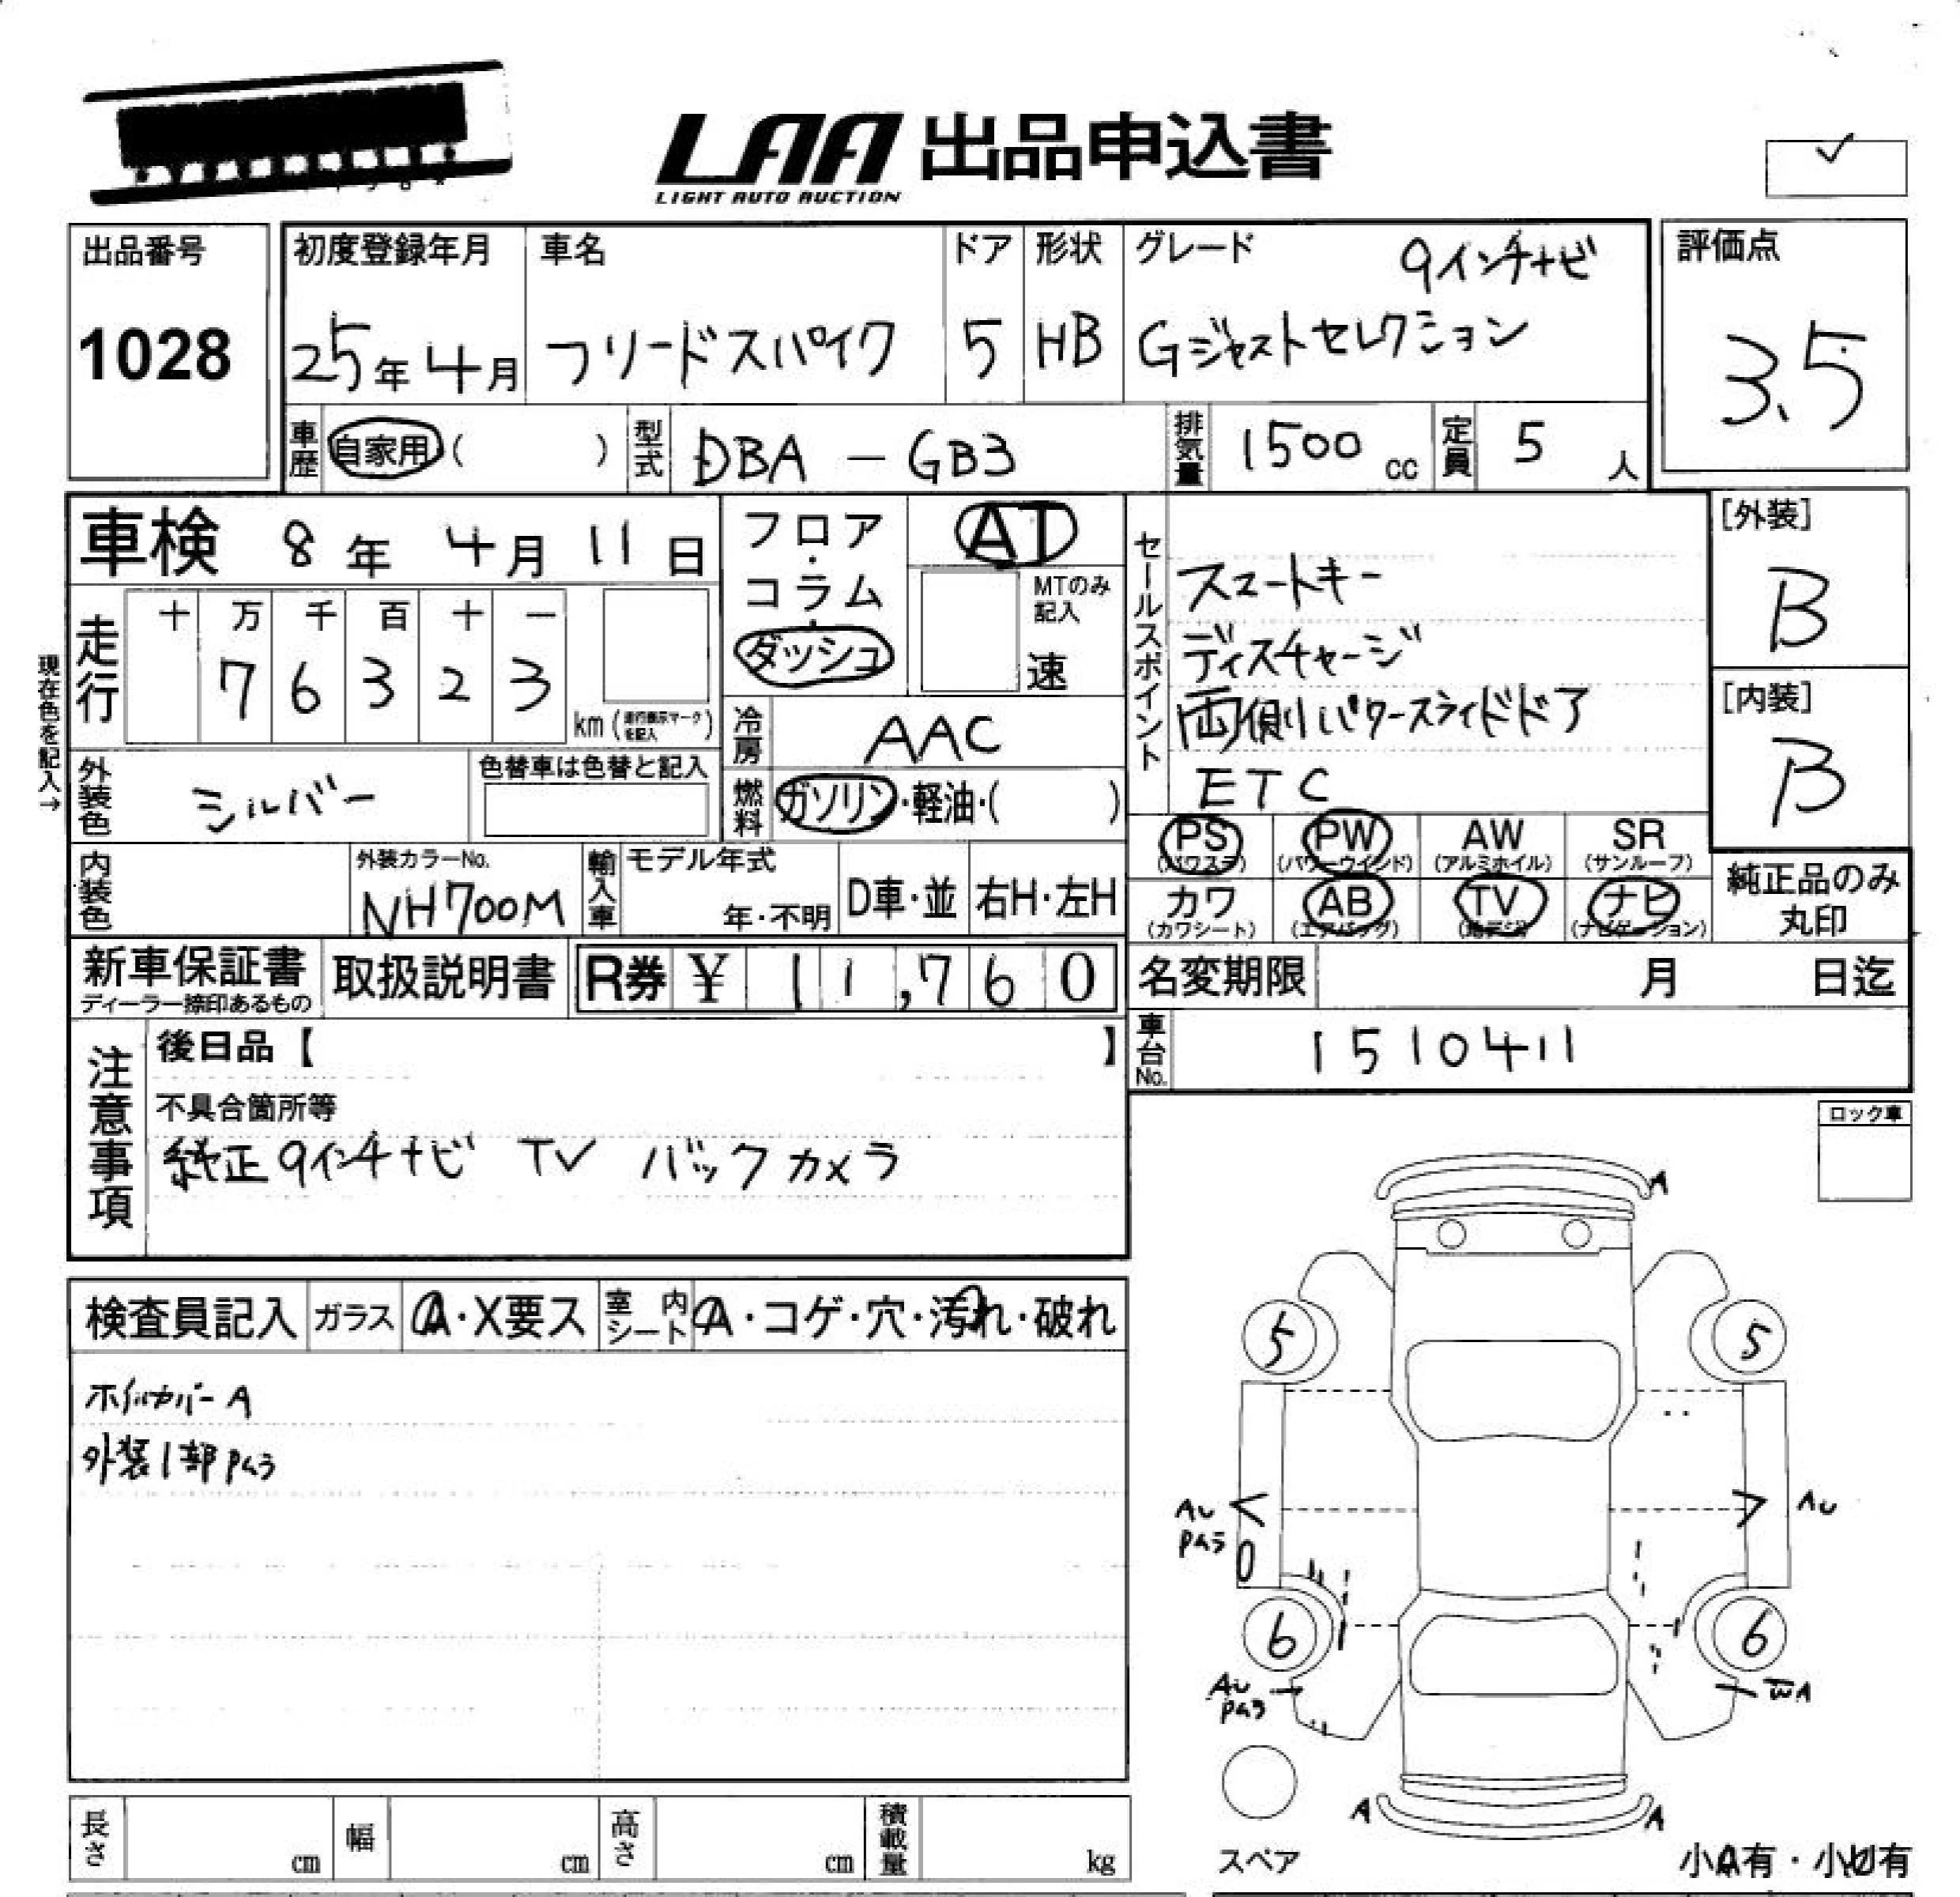 LAA 出品申込書
LIGHT AUTO AUCTION
出品番号
1028
初度登録年月
25年 4月
車名
フリードスパイク
ドア
5
形状
HB
グレード
9インチナビ
Gジャストセレクション
評価点
3.5
車歴 自家用 ( )
型式 DBA - GB3
排気量 1500 cc
定員 5 人
車検 8年 4月 11日
現在色を記入→
走行
十 万 千 百 十 一
7 6 3 2 3
km (走行表示マークを記入)
外装色 シルバー
色替車は色替と記入
フロア・コラム・ダッシュ
AT
MTのみ記入
速
冷房 AAC
燃料 ガソリン・軽油・( )
セールスポイント
スマートキー
ディスチャージ
両側パワースライドドア
ETC
[外装]
B
[内装]
B
内装色
外装カラーNo.
NH700M
輸入車
モデル年式
年・不明
D車・並
右H・左H
PS (パワステ)
PW (パワーウインド)
AW (アルミホイル)
SR (サンルーフ)
カワ (カワシート)
AB (エアバッグ)
TV (地デジ)
ナビ (ナビゲーション)
純正品のみ
丸印
新車保証書
ディーラー捺印あるもの
取扱説明書
R券 ¥ 11,760
名変期限 月 日迄
車台No. 1510411
注意事項
後日品【 】
不具合箇所等
純正9インチナビ TV バックカメラ
ロック車
検査員記入
ガラス A・X要ス
室内シート A・コゲ・穴・汚れ・破れ
ホイルカバーA
外装1部PA3
A
5
5
AU
PA3
AU
6
6
AU
PA3
WA
A
A
スペア
小A有・小U有
長さ cm
幅 cm
高さ cm
積載量 kg